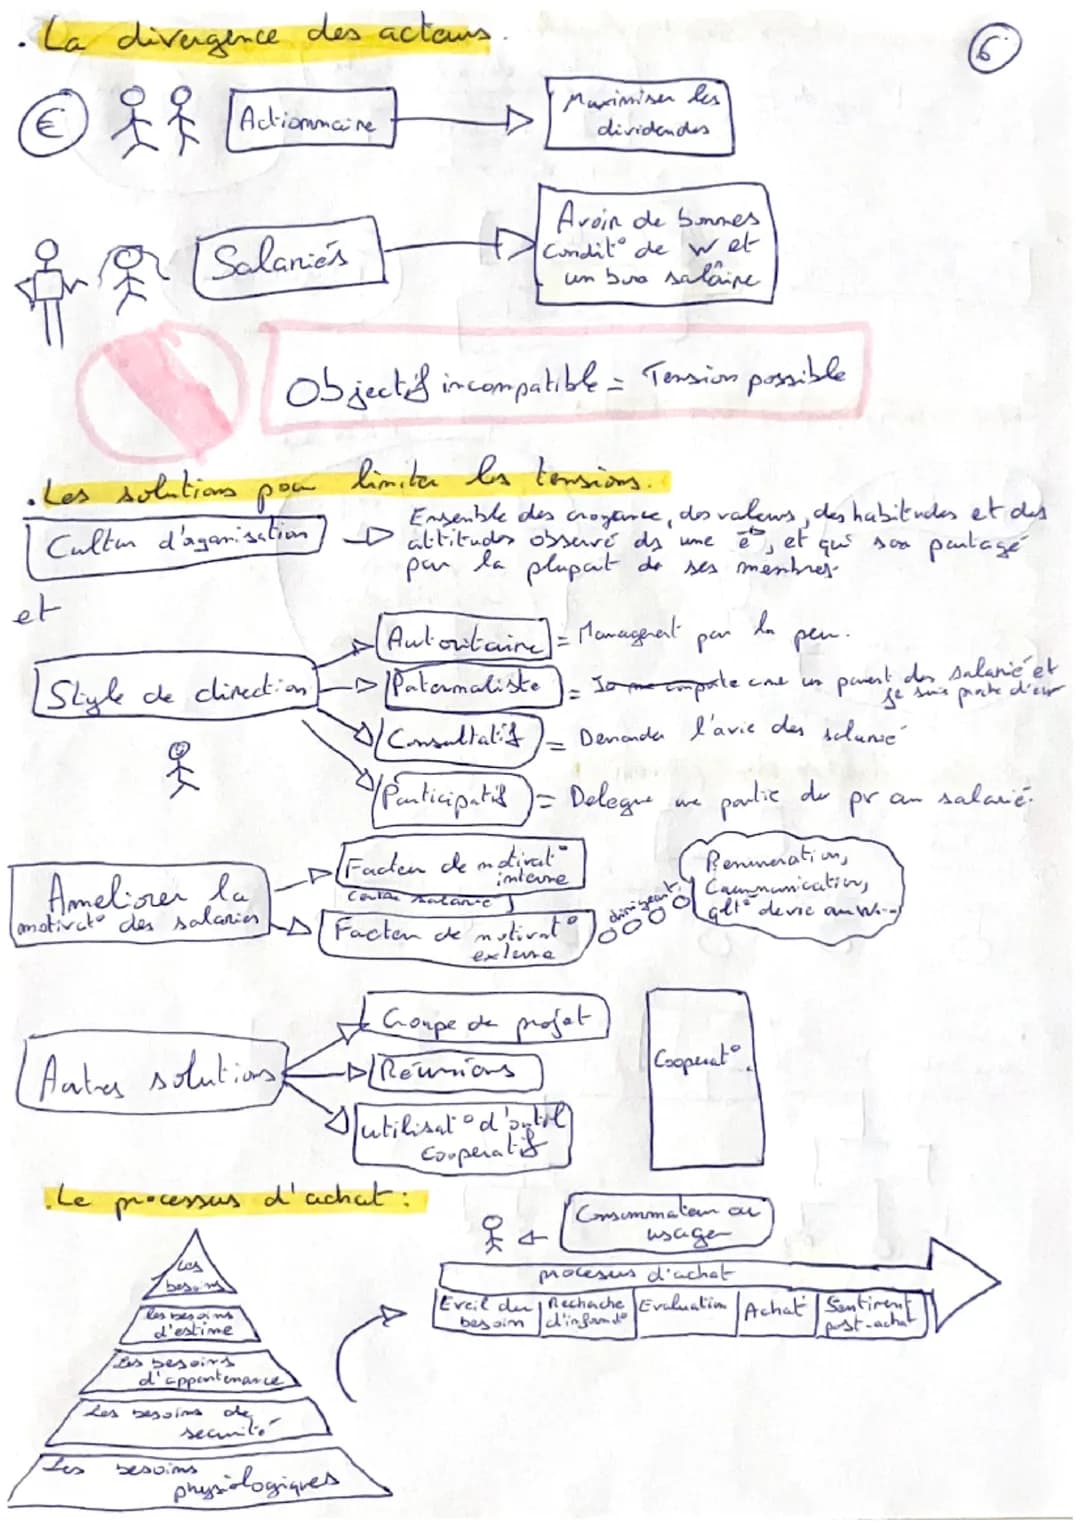 . La divergence des acteurs.
6
€
Actionnaire
Maximiser les
dividendes
Salariés
Avoir de bonnes
condit° de w et
un bon salaire
Objectif incompatible = Tension possible
. Les solutions pour limiter les tensions.
Culture d'organisation
Ensemble des croyance, des valeurs, des habitudes et des
attitudes observé ds une et qui son partagé
par la plupart de ses membres.
et
Style de direction
Autoritaire = Managemt par la peur.
Paternaliste = comporte cme un parent des salarié et
je suis proche d'eux
Consultatif = Demander l'avie des salarié
Participatif = Delegue une partie du pr au salarié.
Ameliorer la
motivat° des salariés
Facteur de motivat°
interne
salarié
Facteur de motivat°
externe
dirigeant.
Remuneration,
Communication,
qlt° de vie au W...
Autres solutions
Groupe de projet
Réunions
utilisat° d'outil
cooperatif
Cooperat°.
. Le processus d'achat :
Consommateur ou
usager
processus d'achat
Eveil du
besoin
Recherche
d'informat°
Evaluation
Achat
Sentiment
post-achat
Les
besoins
Les besoins
d'estime
Les besoins
d'appartenance
Les besoins de
securité
Les besoins
physiologiques